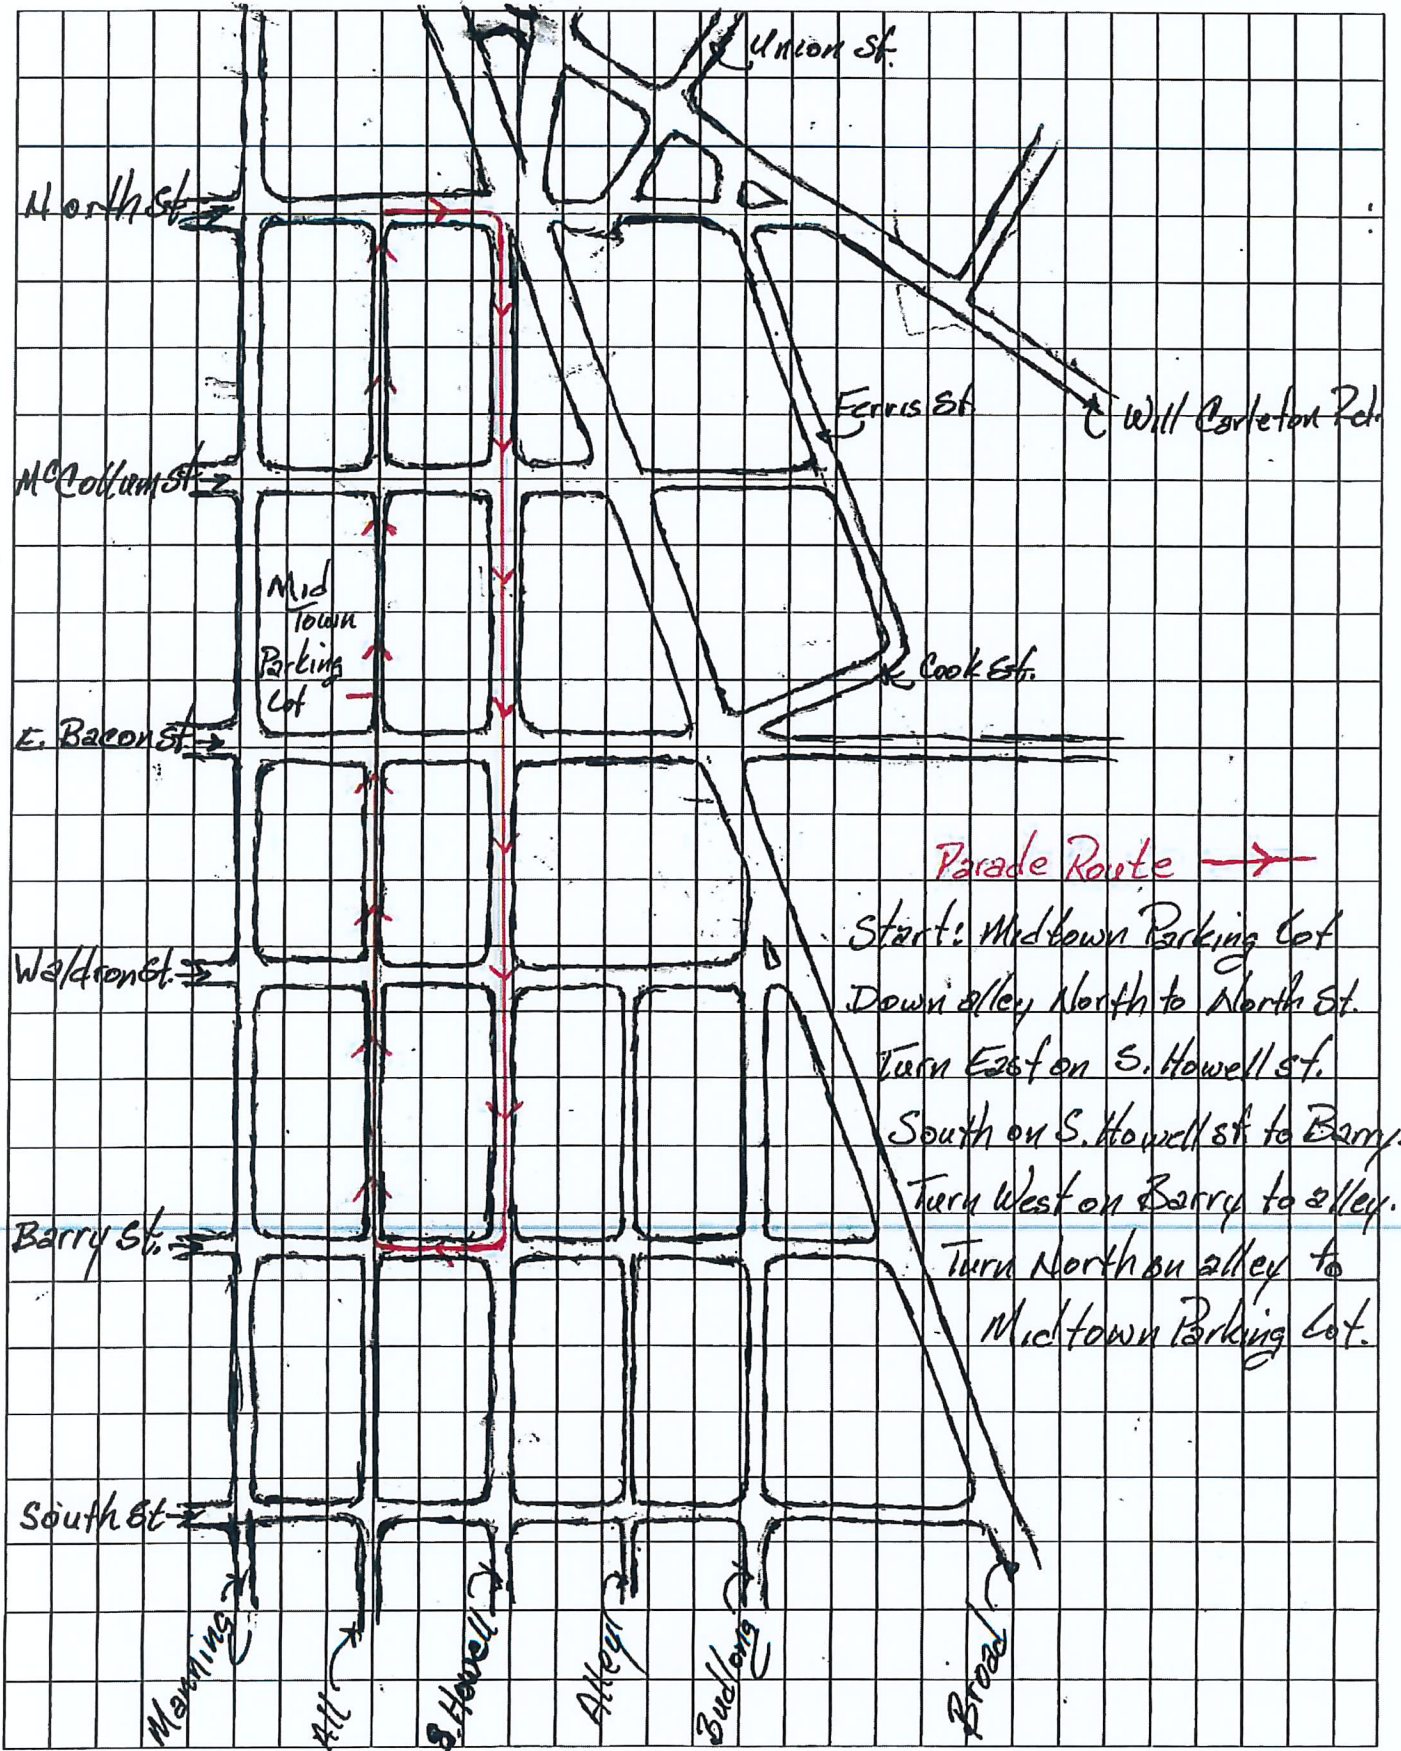 Union St.
North St.
Ferris St
Will Carleton Rd.
McCollum St.
Mid
Town
Parking
Lot
Cook St.
E. Bacon St.
Parade Route
Start: Midtown Parking Lot
Waldron St.
Down alley North to North St.
Turn East on S. Howell st.
South on S. Howell st to Barry.
Turn West on Barry to alley.
Barry St.
Turn North on alley to
Midtown Parking Lot.
South St
Manning
All
S. Howell
Alley
Budlong
Broad